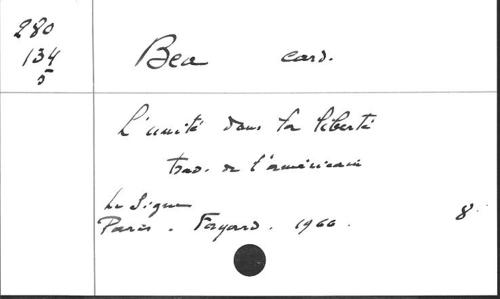 280
134
5
Bea card.
L'unité dans la liberté
trad. de l'américain
Le Signe
Paris. Fayard. 1966. 8.